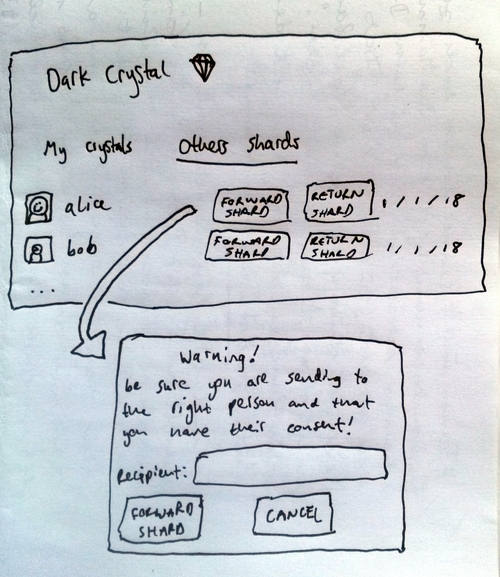 Dark Crystal
My crystals Others shards
alice FORWARD SHARD RETURN SHARD 1/1/18
bob FORWARD SHARD RETURN SHARD 1/1/18
...
Warning!
be sure you are sending to
the right person and that
you have their consent!
Recipient:
FORWARD SHARD CANCEL